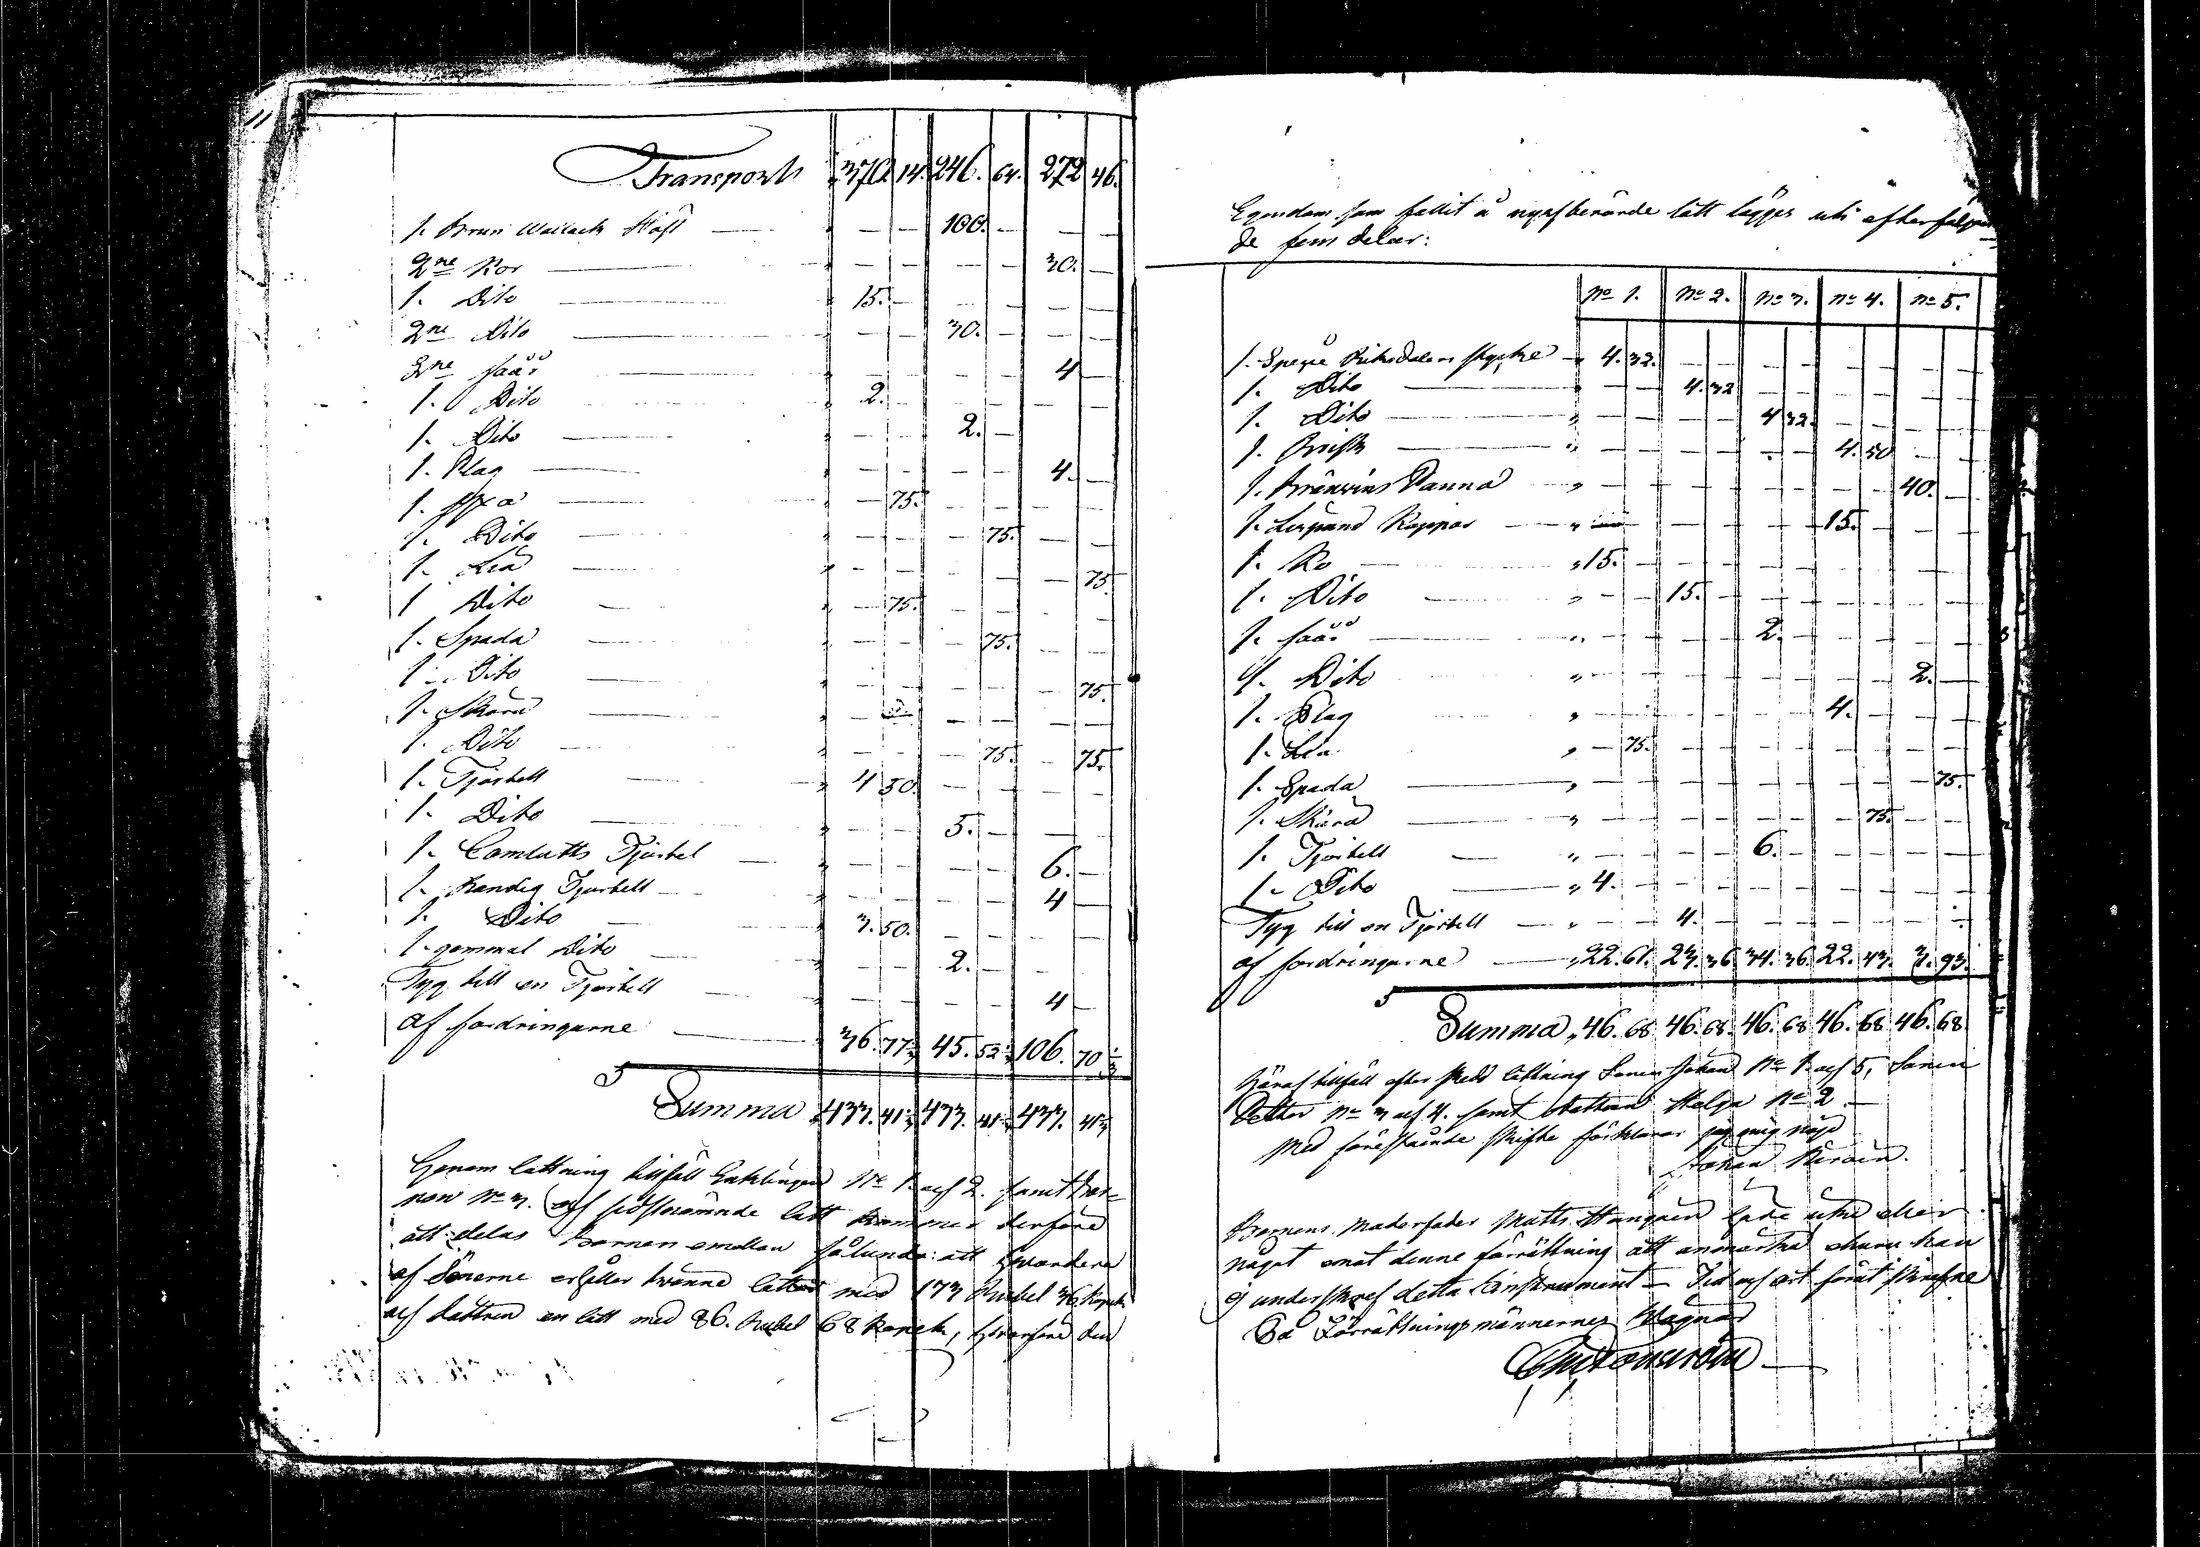 11
Transport 370. 14. 246. 64. 272 46.
1. Brun Wallack Häst — — — 100. — — —
2ne Kor — — — — — 30. —
1. Dito 15. — — — — —
2ne Dito — — 30. — — —
2ne får — — — — 4 —
1. Dito 2. — — — — —
1. Dito — — 2. —
1. Plag — — — — 4. —
1. Yxa — 75. — — — —
1. Dito — — — 75. — —
1. Lia — — — — — 75
1 Dito — 75. — — — —
1. Spada — — — 75. — —
1. Dito — — — — — 75.
1. Skära — — — — —
1. Dito — — — 75. — 75.
1. Fjärbell 4 50. — — — —
1. Dito — — 5. — —
1. Camlutts Fjärbel — — — — 6. —
1. Randig Fjärbell — — — — 4 —
1. Dito 3. 50. — — — —
1. gammal Dito — — 2. — — —
Tyg till en Fjärbell — — — — 4 —
af fordringarne 36. 77 45. 52 106. 70
Summa 433. 41 433. 41 433. 41
Genom lattning tillföll Enklingen No 1 och 2. samt bar-
nen No 3. och sidstnämnde latt kommer derföre
att delas barnen emellan sålunda: att hvardera
af Sönerne erhåller tvenne latter med 173 Rubel 36 Kopek
och dattren en latt med 86. Rubel 68 Kopek, hvarföre den
Egendom som fallit å nyssberörde latt lägges uti efterföljan-
de fem delar:
No 1. No 2. No 3. No 4. No 5.
1. Specie Riksdalers stycke 4. 32. — — — — — — — —
1. Dito — — 4. 32 — — — — — —
1. Dito — — — — 4 32. — — — —
1. — — — — — — 4. 50 — —
1. Bränvins Panna — — — — — — — — 40. —
1. Lispund Koppar — — — — — — 15. — — —
1. Ko 15. — — — — — — — — —
1. Dito — — 15. — — — — — — —
1. får — — — — 2. — — — — —
1. Dito — — — — — — — — 2. —
1. Plag — — — — — — 4. — — —
1. Lia — 75. — — — — — — — —
1. Spada — — — — — — — — — 75.
1. Skära — — — — — — — 75. — —
1. Fjärbell — — — — 6. — — — — —
1. Dito 4. — — — — — — — — —
Tyg till en Fjärbell — — 4. — — — — — —
af fordringarne 22. 61. 23. 36 34. 36. 22. 43. 3. 93.
Summa 46. 68 46. 68. 46. 68 46. 68 46. 68
Häraf tillföll efter skedd lattning Sonen Johan No 1 och 5, Sonen
Petter No 3 och 4. samt dattren Helga No 2 —
Med förestående skifte förklarar jag mig nöjd
Johan
Barnens Moderfader Matts hade icke eller
något emot denne förrättning att anmärka ehuru han
ej underskref detta instrument — Tid och ort förut skrefne
På Förrättningsmännernes Wägnar